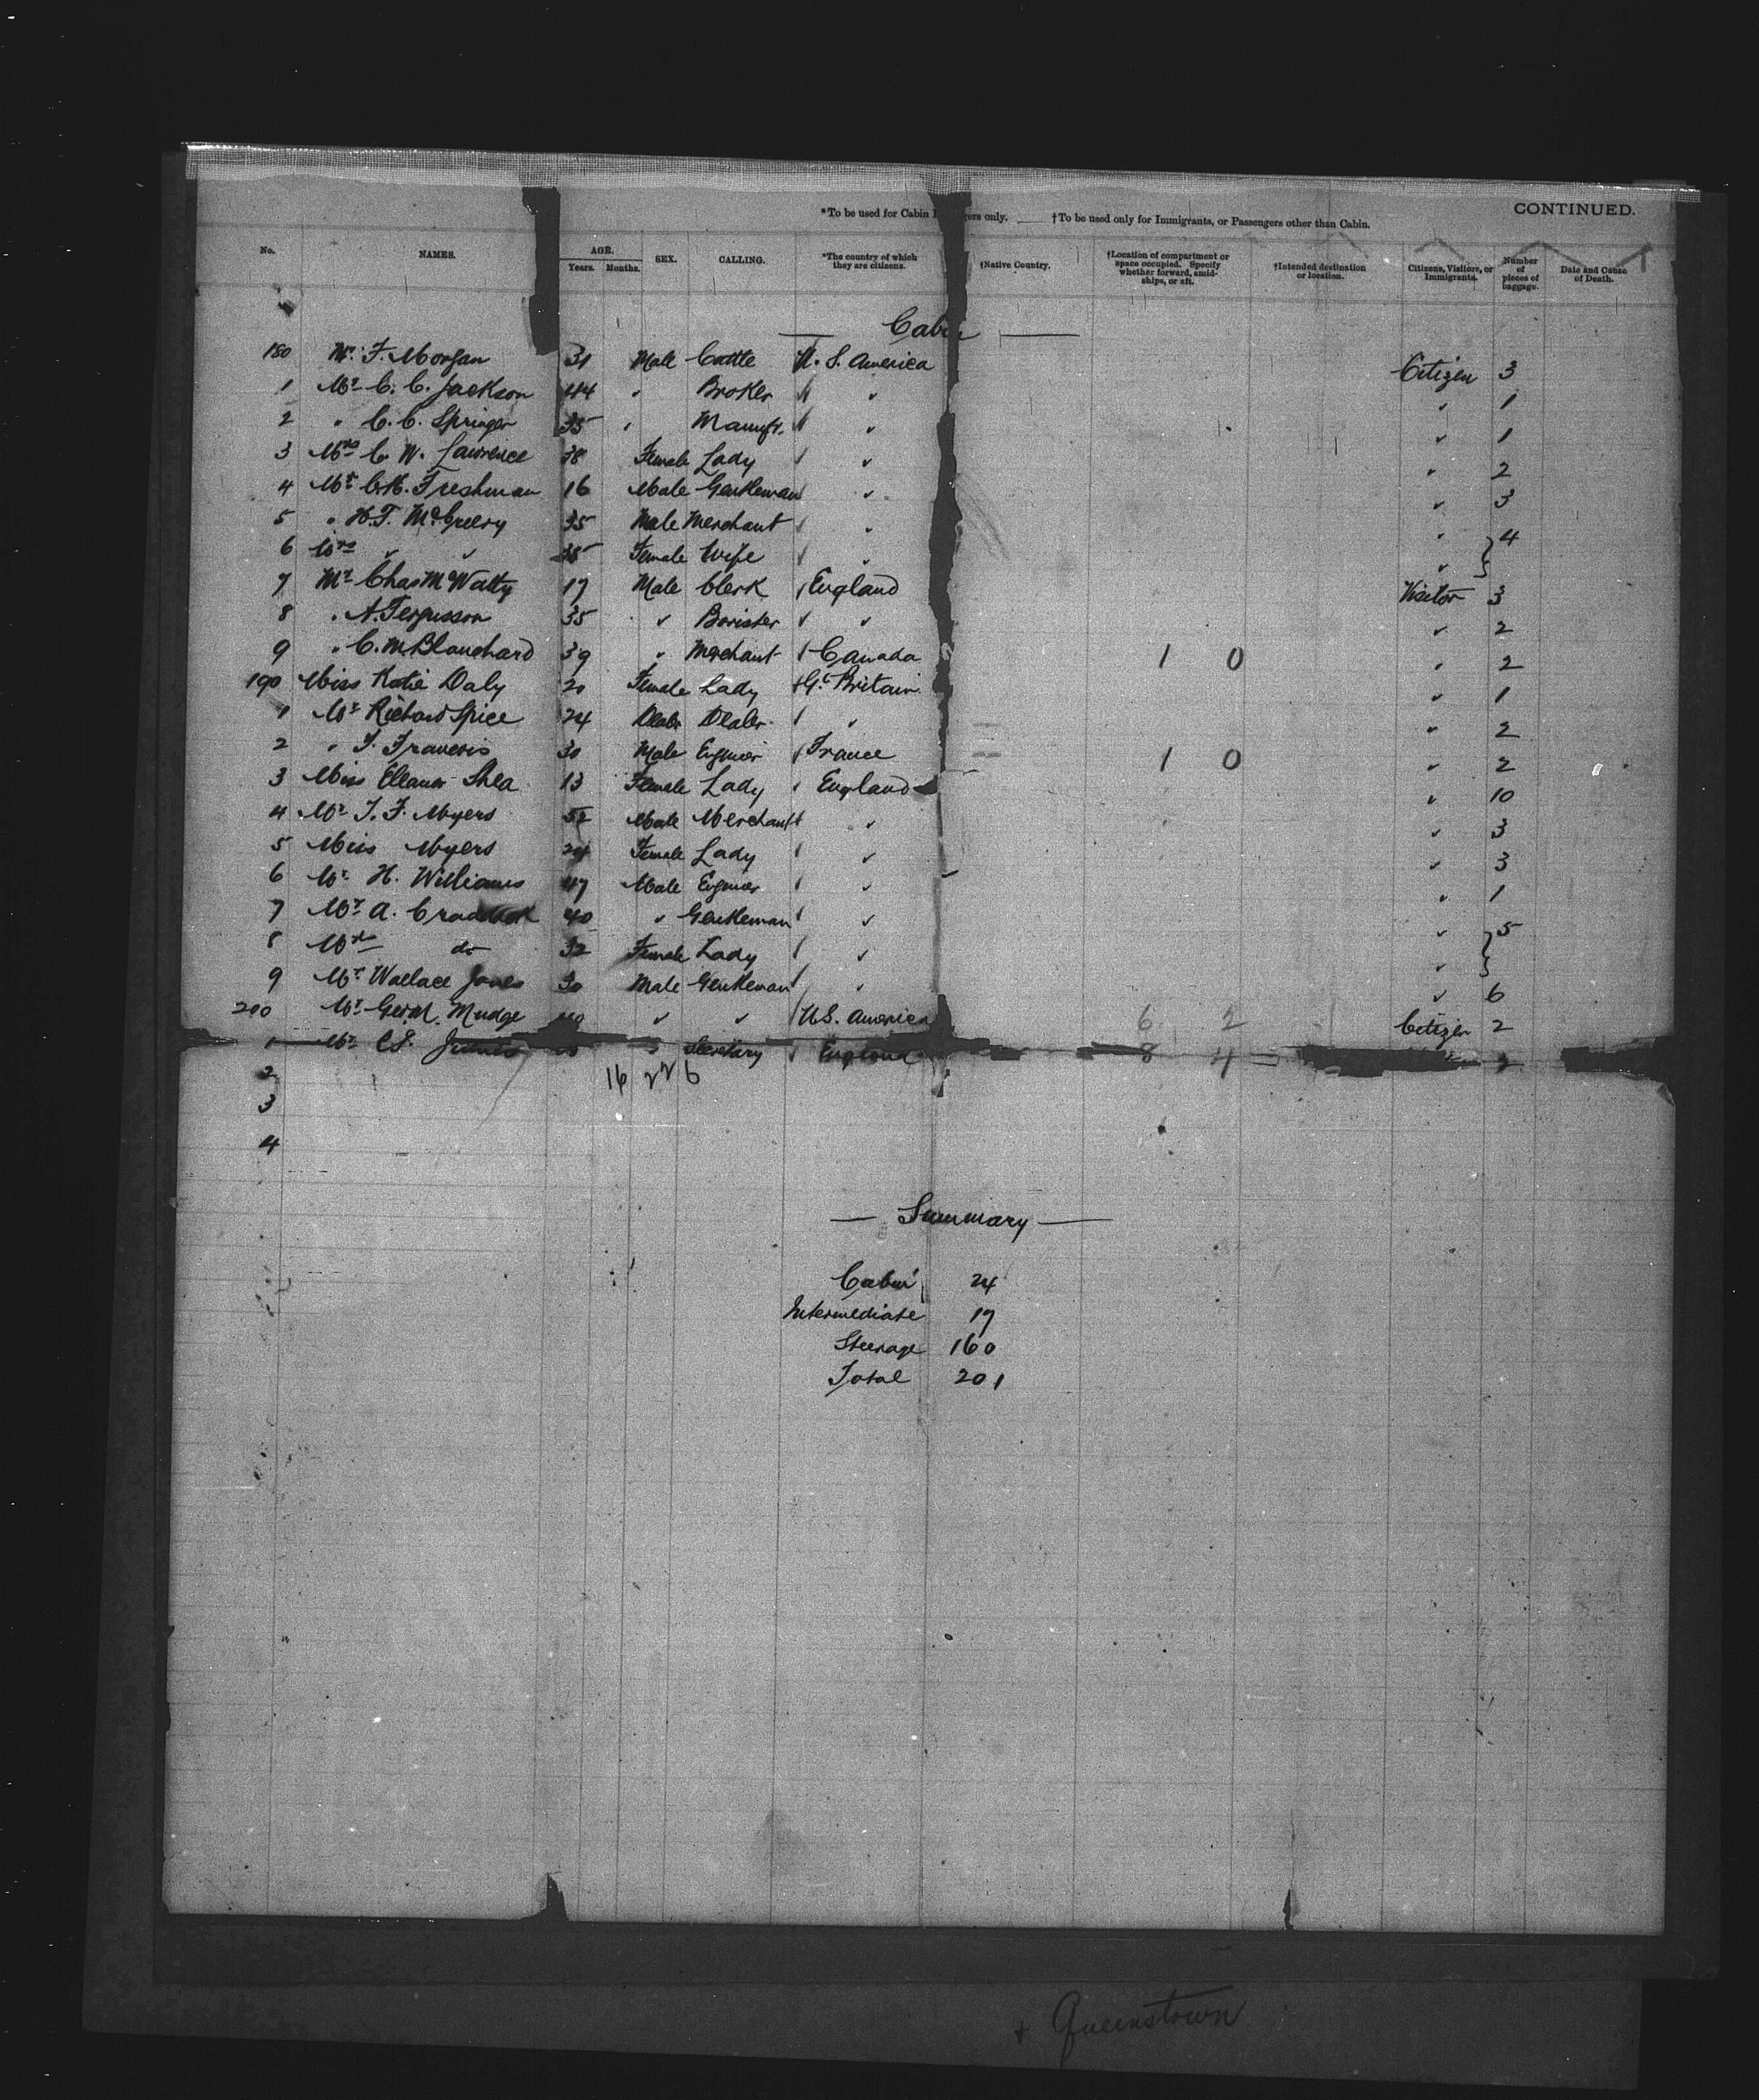 CONTINUED.
*To be used for Cabin gers only. †To be used only for Immigrants, or Passengers other than Cabin.
No. NAMES. AGE. Years. Months. SEX. CALLING. *The country of which they are citizens. †Native Country. †Location of compartment or space occupied. Specify whether forward, amidships, or aft. †Intended destination or location. Citizens, Visitors, or Immigrants. Number of pieces of baggage. Date and Cause of Death.
— Cabin —
180 Mr. F. Morgan 31 Male Cattle U. S. America Citizen 3
1 Mr C. C. Jackson 44 " Broker " " 1
2 " C. C. Springer 35 " Manuft. " " 1
3 Mrs C. W. Lawrence 38 Female Lady " " 2
4 Mr Freshman 16 Male Gentleman " " 3
5 " H. T. McCreery 35 Male Merchant " " 4
6 Mrs " " Female Wife " "
7 Mr Chas McWatty 17 Male Clerk England Visitor 3
8 " A. Fergusson 35 " Barister " " 2
9 " C. M. Blanchard 39 " Merchant Canada 1 0 " 2
190 Miss Katie Daly 20 Female Lady Gt Britain " 1
1 Mr Richard Spice 24 Dealer " " 2
2 " Francois 30 Male Enginier France 1 0 " 2
3 Miss Eleanor Shea 13 Female Lady England " 10
4 Mr T. F. Myers 52 Male Merchant " " 3
5 Miss Myers 24 Female Lady " " 3
6 Mr H. Williams 47 Male Enginier " " 1
7 Mr A. Craddock 40 " Gentleman " " 5
8 Mrs do 32 Female Lady " "
9 Mr Wallace Jones 30 Male Gentleman " " 6
200 Mr Geo. M. Mudge " " U.S. America 6 2 Citizen 2
1 Mr " Secretary England 8 4 2
2 16 22 6
3
4
— Summary —
Cabin 24
Intermediate 17
Steerage 160
Total 201
+ Queenstown